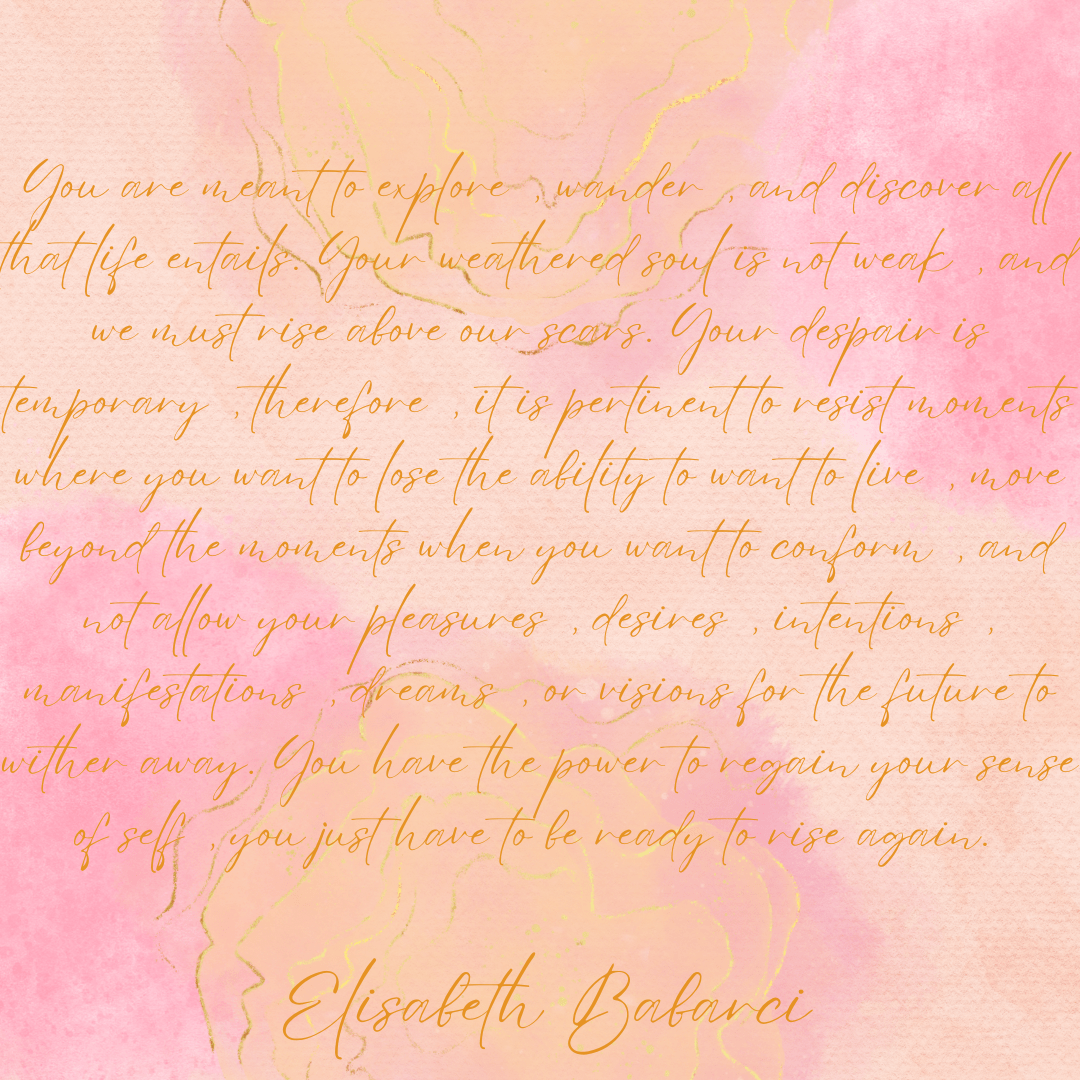 You are meant to explore , wander , and discover all
that life entails. Your weathered soul is not weak , and
we must rise above our scars. Your despair is
temporary , therefore , it is pertinent to resist moments
where you want to lose the ability to want to live , move
beyond the moments when you want to conform , and
not allow your pleasures , desires , intentions ,
manifestations , dreams , or visions for the future to
wither away. You have the power to regain your sense
of self , you just have to be ready to rise again.
Elisabeth Babarci